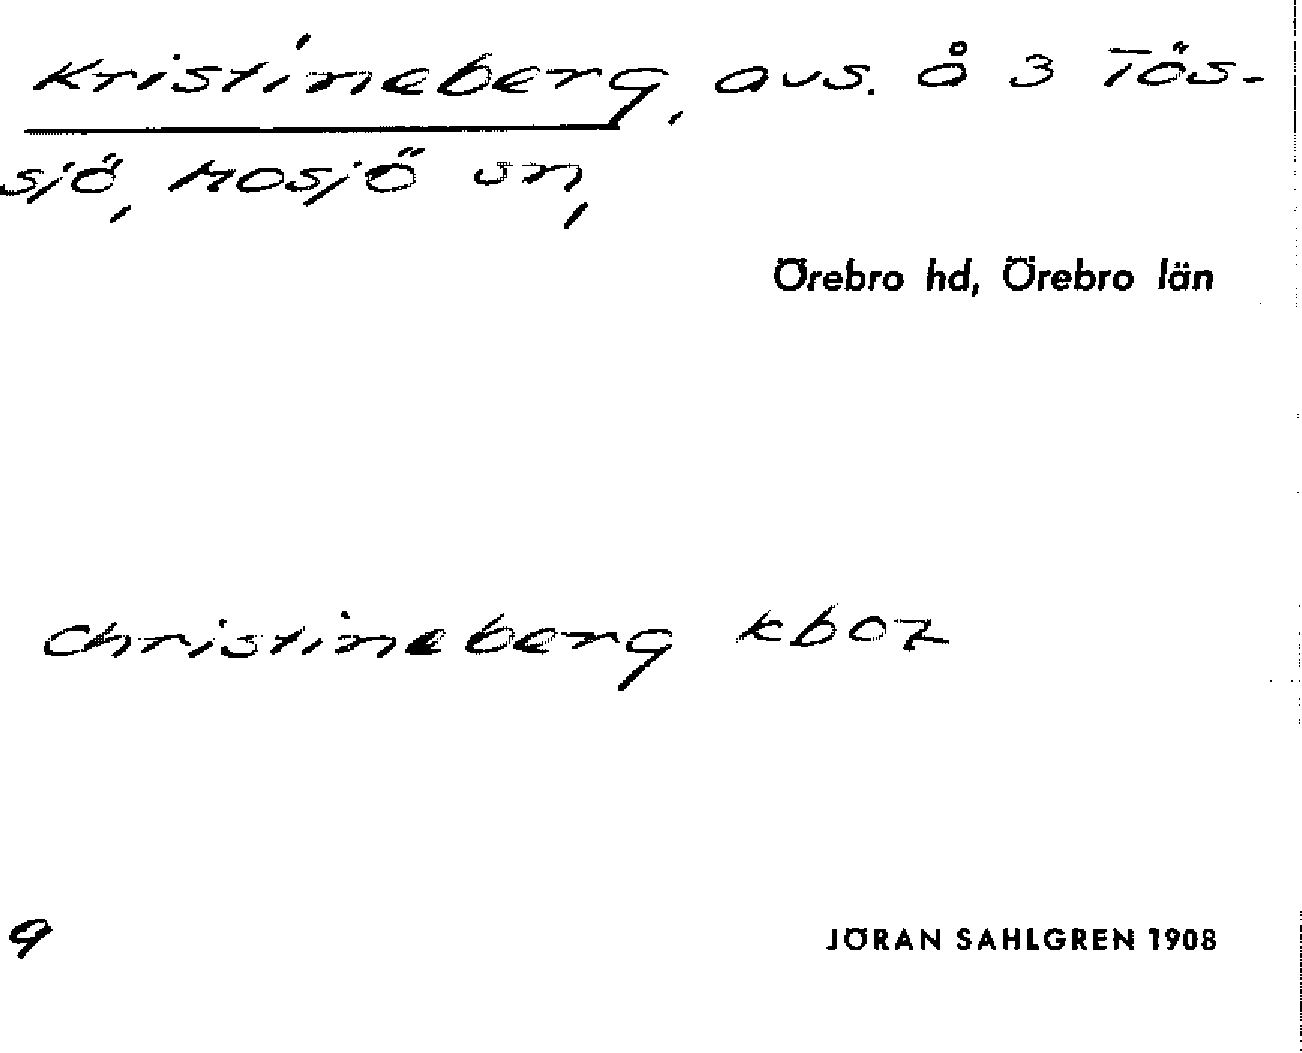 Kristineberg, avs. å 3 Tös-
sjö, Mosjö sn,
Örebro hd, Örebro län
Christineberg kb07
9
JÖRAN SAHLGREN 1908